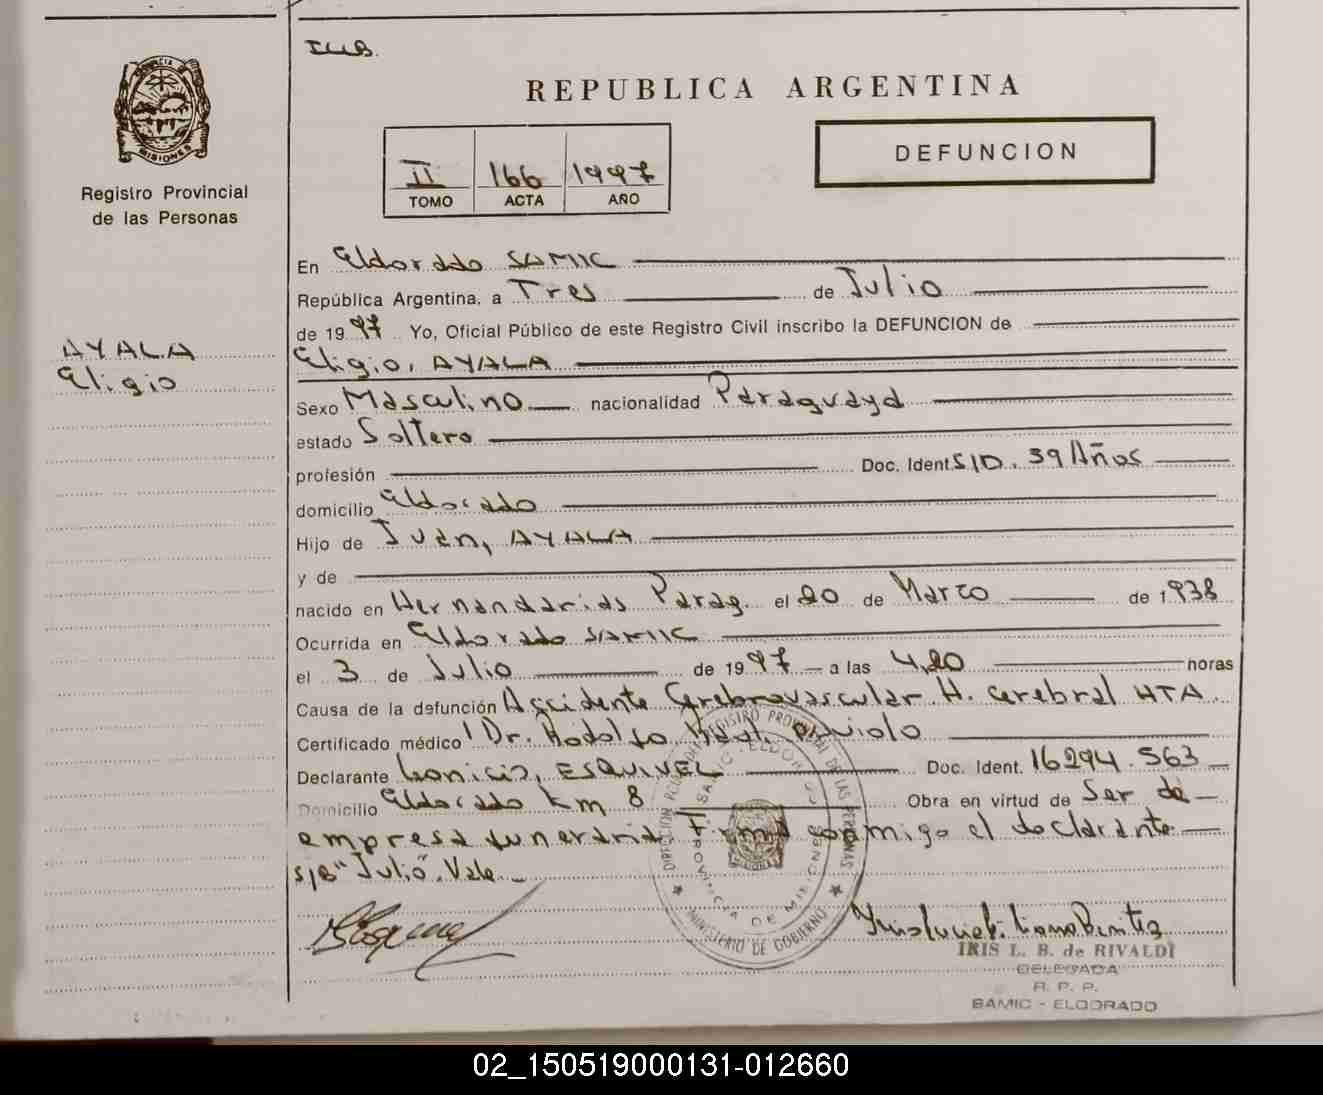 I.L.B.
REPUBLICA ARGENTINA
DEFUNCION
II 166 1997
TOMO ACTA AÑO
PROVINCIA DE MISIONES
Registro Provincial
de las Personas
AYALA
Eligio
En Eldorado SAMIC
República Argentina, a Tres de Julio
de 1997 Yo, Oficial Público de este Registro Civil inscribo la DEFUNCION de
Eligio, AYALA
Sexo Masculino nacionalidad Paraguaya
estado Soltero
profesión Doc. Ident. S/D. 59 Años
domicilio Eldorado
Hijo de Juan, AYALA
y de
nacido en Hernandarias Parag. el 20 de Marzo de 1938
Ocurrida en Eldorado SAMIC
el 3 de Julio de 1997 a las 4,20 horas
Causa de la defunción Accidente Cerebrovascular H. cerebral HTA
Certificado médico Dr. Rodolfo
Declarante Leonicio, ESQUIVEL Doc. Ident. 16294.563
Domicilio Eldorado Km 8 Obra en virtud de Ser de
empresa funeraria Firma conmigo el declarante
S/B "Julio". Vale
DIRECCION REGISTRO PROVINCIAL DE LAS PERSONAS
SAMIC - ELDORADO
PROVINCIA DE MISIONES
MINISTERIO DE GOBIERNO
IRIS L. B. de RIVALDI
DELEGADA
R. P. P.
SAMIC - ELDORADO
02_150519000131-012660